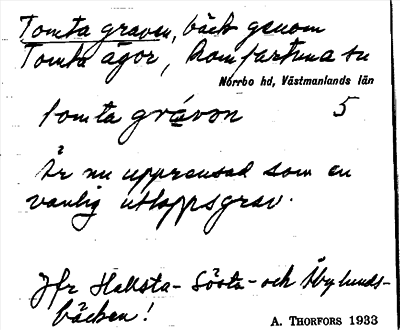 Tomta graven, bäck genom
Tomta ägor, Romfartuna sn
Norrbo hd, Västmanlands län
Tomta gråven 5
Är nu upprensad som en
vanlig utloppsgrav.
Jfr Hallsta- Sörsta- och Åbylunds-
bäcken!
A. THORFORS 1933